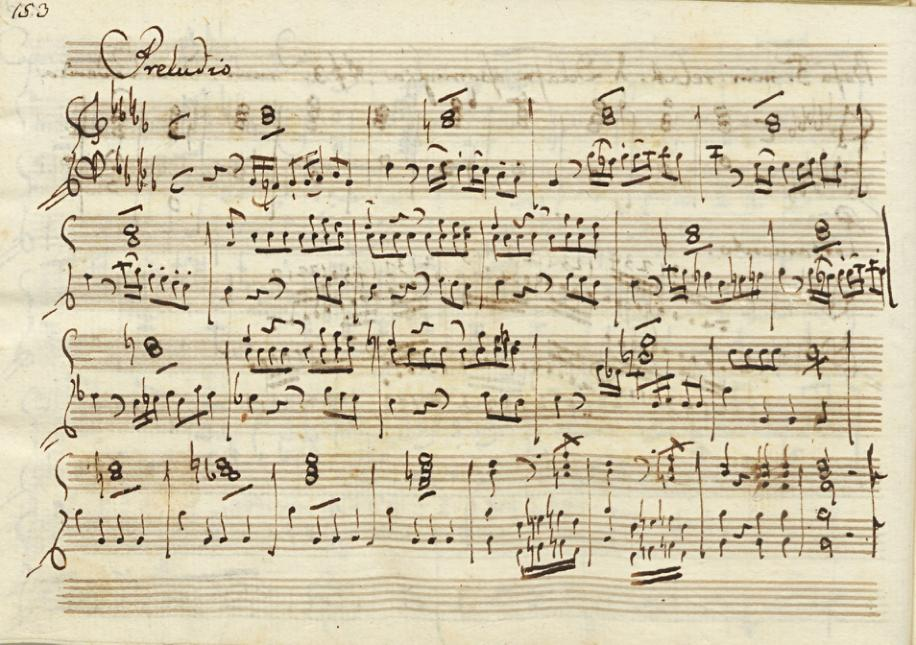 153
Preludio